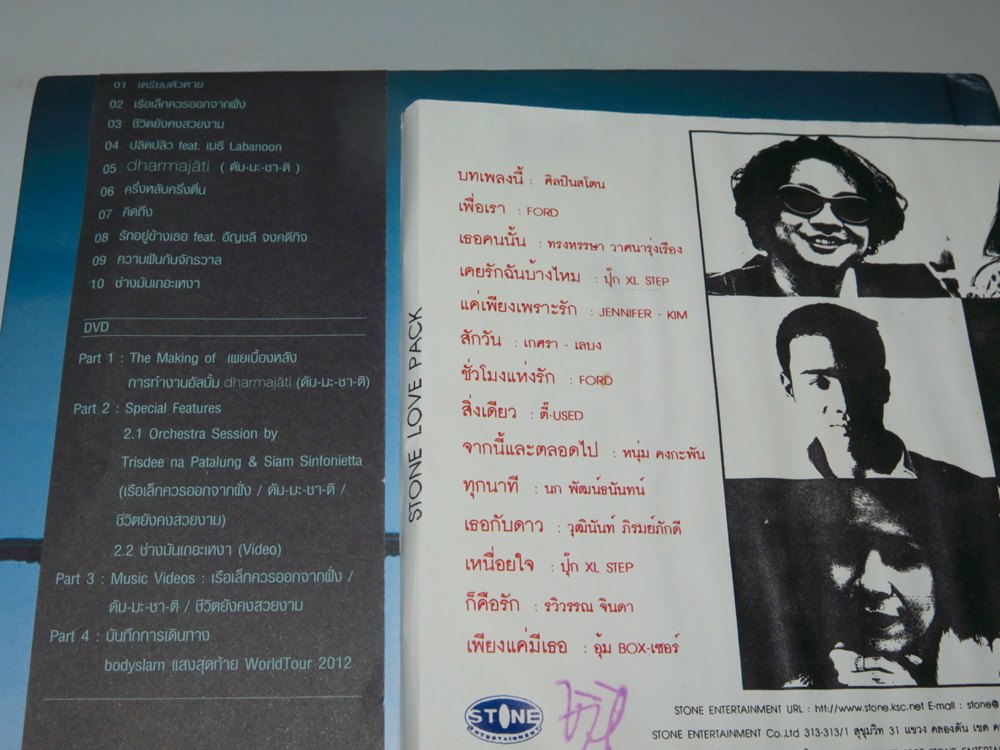 01 เตรียมตัวตาย
02 เรือเล็กควรออกจากฝั่ง
03 ชีวิตยังคงสวยงาม
04 ปลิดปลิว feat. เมธี Labanoon
05 dharmajāti ( ดัม-มะ-ชา-ติ )
06 ครึ่งหลับครึ่งตื่น
07 คิดถึง
08 รักอยู่ข้างเธอ feat. อัญชลี จงคดีกิจ
09 ความฝันกับจักรวาล
10 ช่างมันเถอะเหงา
DVD
Part 1 : The Making of เผยเบื้องหลัง
การทำงานอัลบั้ม dharmajāti (ดัม-มะ-ชา-ติ)
Part 2 : Special Features
2.1 Orchestra Session by
Trisdee na Patalung & Siam Sinfonietta
(เรือเล็กควรออกจากฝั่ง / ดัม-มะ-ชา-ติ /
ชีวิตยังคงสวยงาม)
2.2 ช่างมันเถอะเหงา (Video)
Part 3 : Music Videos : เรือเล็กควรออกจากฝั่ง /
ดัม-มะ-ชา-ติ / ชีวิตยังคงสวยงาม
Part 4 : บันทึกการเดินทาง
bodyslam แสงสุดท้าย WorldTour 2012
STONE LOVE PACK
บทเพลงนี้ : ศิลปินสโตน
เพื่อเรา : FORD
เธอคนนั้น : ทรงหรรษา วาศนารุ่งเรือง
เคยรักฉันบ้างไหม : ปุ๊ก XL STEP
แค่เพียงเพราะรัก : JENNIFER - KIM
สักวัน : เกศรา - เลบง
ชั่วโมงแห่งรัก : FORD
สิ่งเดียว : ตี๋-USED
จากนี้และตลอดไป : หนุ่ม คงกะพัน
ทุกนาที : นก พัฒน์ธนันทน์
เธอกับดาว : วุฒินันท์ ภิรมย์ภักดี
เหนื่อยใจ : ปุ๊ก XL STEP
ก็คือรัก : รวิวรรณ จินดา
เพียงแค่มีเธอ : อุ้ม BOX-เซอร์
STONE
ENTERTAINMENT
STONE ENTERTAINMENT URL : htt://www.stone.ksc.net E-mail : stone@
STONE ENTERTAINMENT Co.,Ltd 313-313/1 สุขุมวิท 31 แขวง คลองตัน เขต